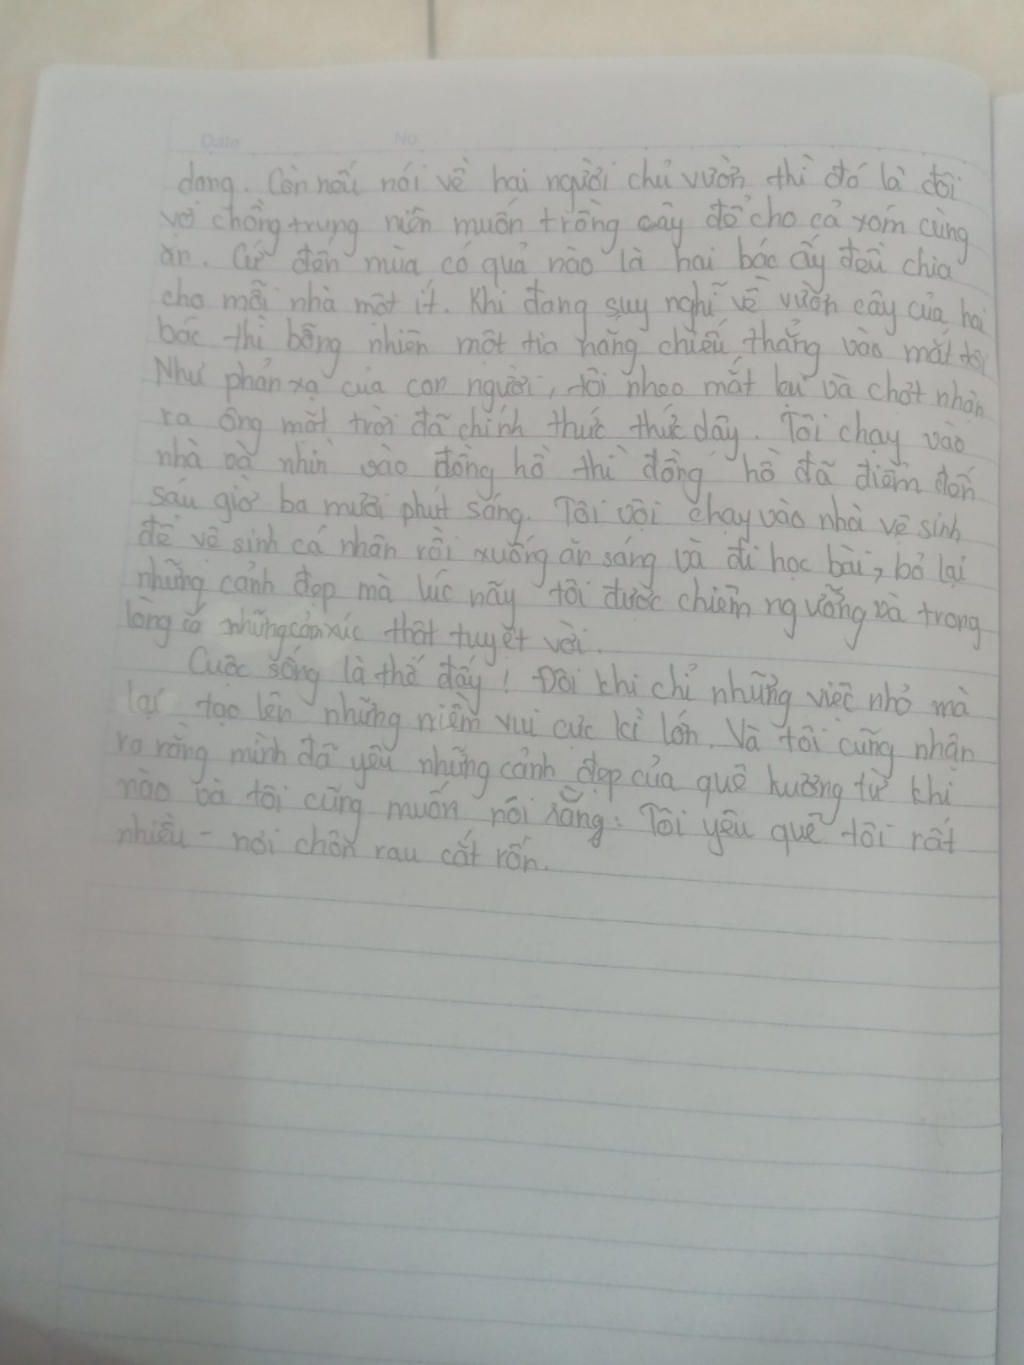 Date No.
dang. Còn nếu nói về hai người chủ vườn thì đó là đôi
vợ chồng trung niên muốn trồng cây để cho cả xóm cùng
ăn. Cứ đến mùa có quả nào là hai bác ấy đều chia
cho mỗi nhà một ít. Khi đang suy nghĩ về vườn cây của hai
bác thì bỗng nhiên một tia nắng chiếu thẳng vào mắt tôi
Như phản xạ của con người, tôi nheo mắt lại và chợt nhận
ra ông mặt trời đã chính thức thức dậy. Tôi chạy vào
nhà và nhìn vào đồng hồ thì đồng hồ đã điểm đến
sáu giờ ba mươi phút sáng. Tôi vội chạy vào nhà vệ sinh
để vệ sinh cá nhân rồi xuống ăn sáng và đi học bài, bỏ lại
những cảnh đẹp mà lúc nãy tôi được chiêm ngưỡng và trong
lòng có những cảm xúc thật tuyệt vời.
Cuộc sống là thế đấy! Đôi khi chỉ những việc nhỏ mà
lại tạo lên những niềm vui cực kì lớn. Và tôi cũng nhận
ra rằng mình đã yêu những cảnh đẹp của quê hương từ khi
nào và tôi cũng muốn nói rằng: Tôi yêu quê tôi rất
nhiều - nơi chôn rau cắt rốn.